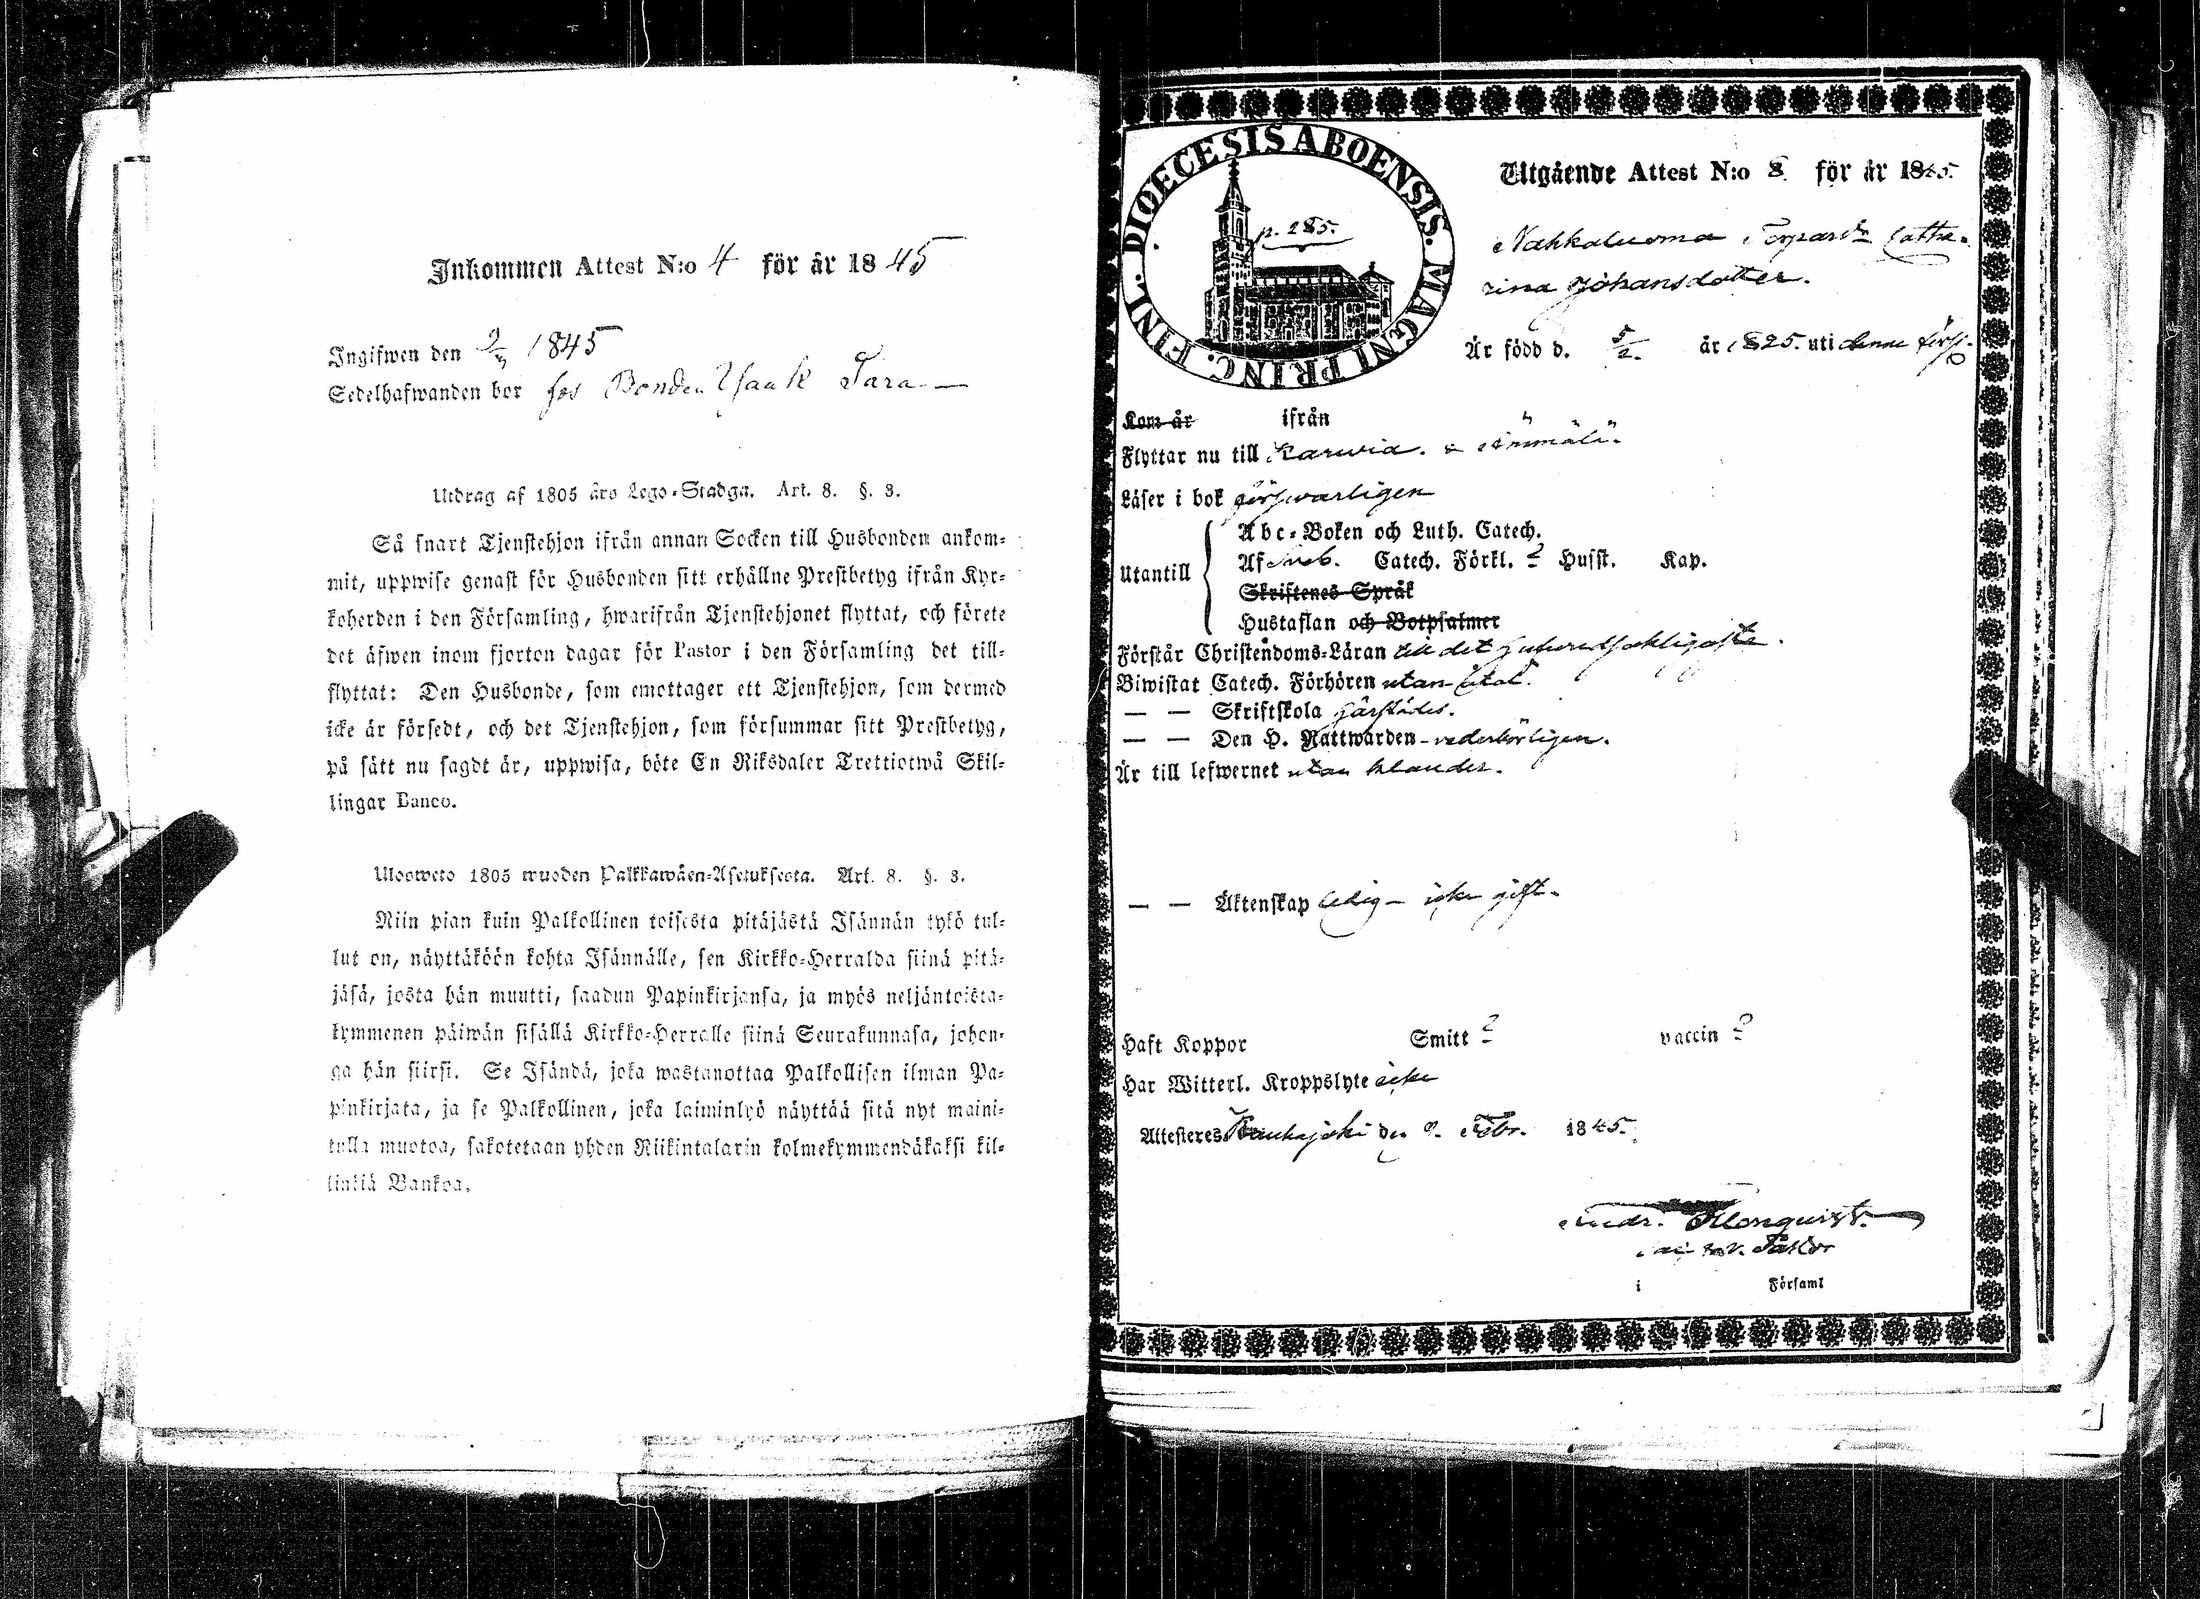 Inkommen Attest N:o 4 för år 1845
Ingifwen den 9/3 1845
Sedelhafwanden bor hos Bonden Isaak Sara
Utdrag af 1805 års Lego-Stadga. Art. 8. §. 3.
Så snart Tjenstehjon ifrån annan Socken till Husbonden ankom-
mit, uppwise genast för Husbonden sitt erhållne Prestbetyg ifrån Kyr-
koherden i den Församling, hwarifrån Tjenstehjonet flyttat, och förete
det äfwen inom fjorton dagar för Pastor i den Församling det till-
flyttat: Den Husbonde, som emottager ett Tjenstehjon, som dermed
icke är försedt, och det Tjenstehjon, som försummar sitt Prestbetyg,
på sätt nu sagdt är, uppwisa, böte En Riksdaler Trettiotwå Skil-
lingar Banco.
Ulosweto 1805 wuoden Palkkawäen-Asetuksesta. Art. 8. §. 3.
Niin pian kuin Palkollinen toisesta pitäjästä Isännän tykö tul-
lut on, näyttäköön kohta Isännälle, sen Kirkko-Herralda siinä pitä-
jäsä, josta hän muutti, saadun Papinkirjansa, ja myös neljäntoista-
kymmenen päiwän sisällä Kirkko-Herralle siinä Seurakunnasa, johon-
ga hän siirsi. Se Isändä, joka wastanottaa Palkollisen ilman Pa-
pinkirjata, ja se Palkollinen, joka laiminlyö näyttää sitä nyt maini-
tulla muotoa, sakotetaan yhden Riikintalarin kolmekymmendäkaksi kil-
linkiä Bankoa.
DIOECESIS ABOENSIS. MAGNI PRINC. FINL.
p. 285.
Utgående Attest N:o 8 för år 1845.
Nahkaluoma Torpardr Catha-
rina Johansdotter.
Är född d. 5/2. år 1825. uti denne förs.
Kom år ifrån
Flyttar nu till Karwia.
Läser i bok försvarligen
Utantill
Abc-Boken och Luth. Catech.
Af Sveb. Catech. Förkl. ? Husst. Kap.
Skriftenes Språk
Hustaflan och Botpsalmer
Förstår Christendoms-Läran till det hufvudsakligaste.
Biwistat Catech. Förhören utan åtal.
— — Skriftskola härstädes.
— — Den H. Nattwarden - vederbörligen.
Är till lefwernet utan klander.
— — Äktenskap ledig - icke gift.
Haft Koppor Smitt ? vaccin ?
Har Witterl. Kroppslyte icke
Attesteres Kauhajoki den 9. Febr. 1845.
Andr.
v. Pastor
i Församl